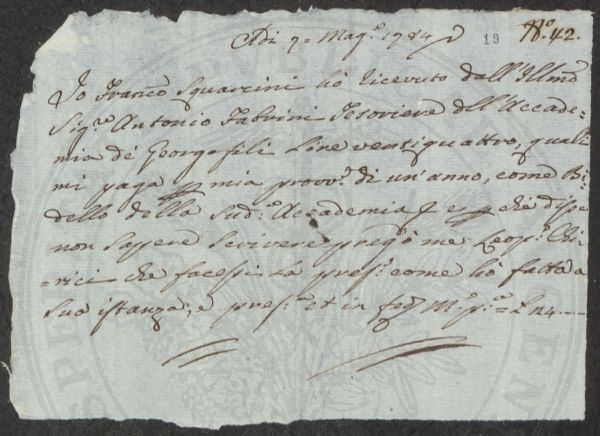 Adi 9 = Mag.º 1784 19 Nº 42.
Io Franco Squarcini hò ricevuto dall'Illmo
Sig.re Antonio Fabrini Tesoriere dell'Accade=
mia de Georgofili Lire ventiquattro, quali
mi paga p mia provv.e di un'anno, come Bi=
dello della Sud.a Accademia, e p che disse
non sapere scrivere pregò me Leop.o Chi=
=rici che facessi la pres.e come hò fatto a
sua istanza, e pres.a et in fede M.º p.a = L 24